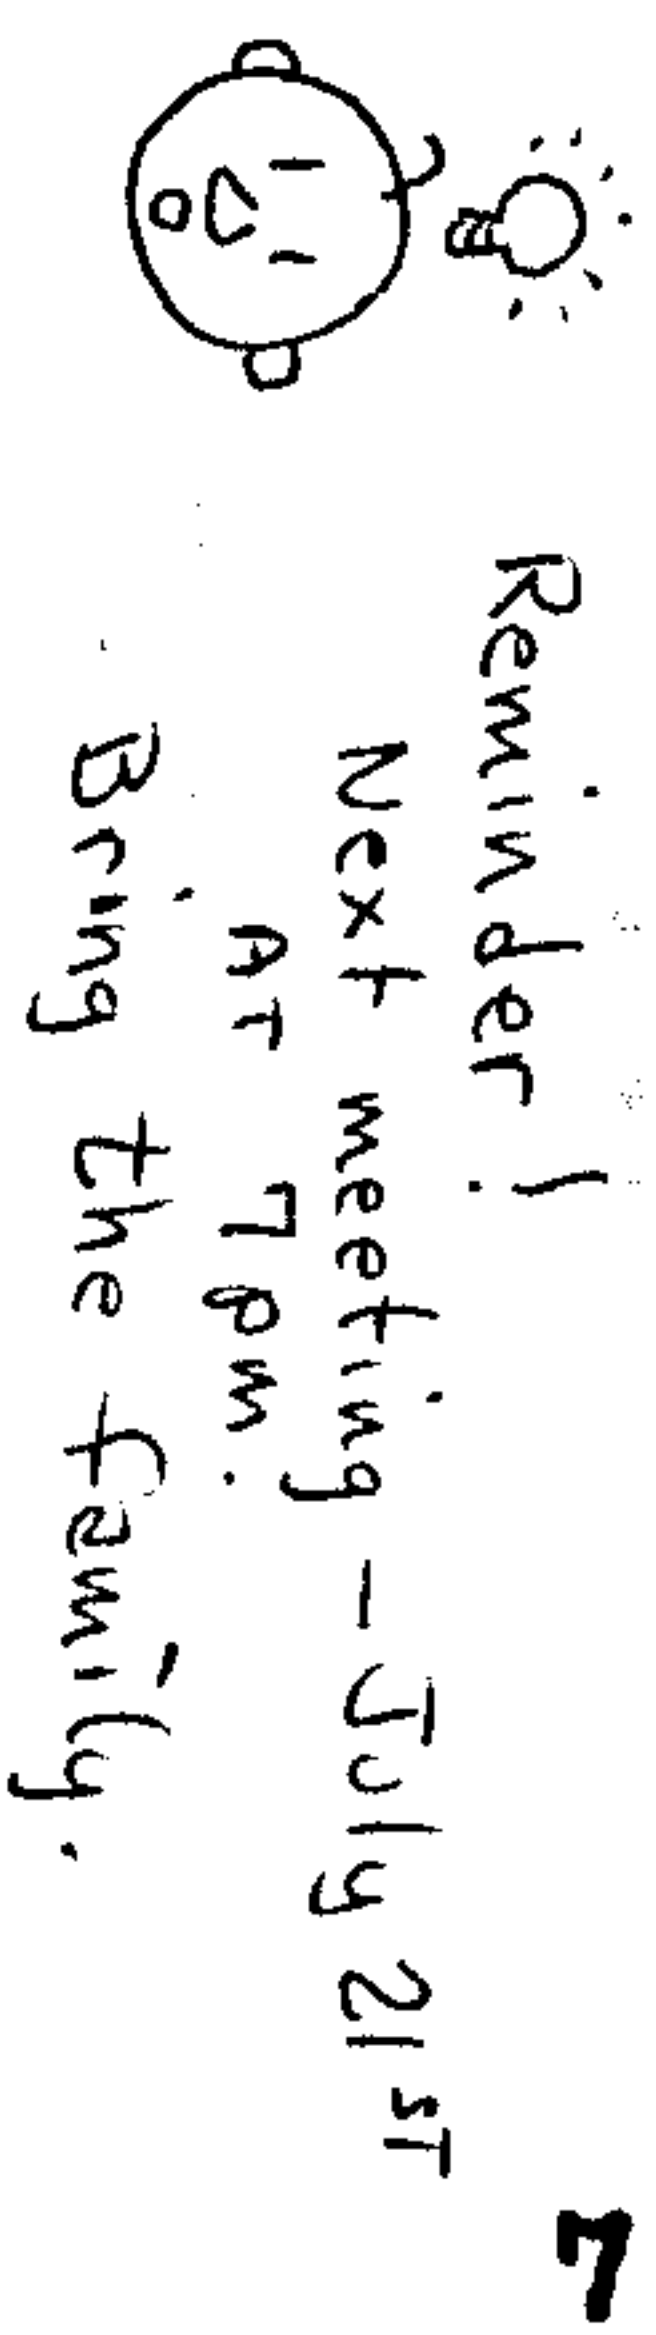 Reminder!
Next meeting - July 21ST
AT 7pm.
Bring the family.
7